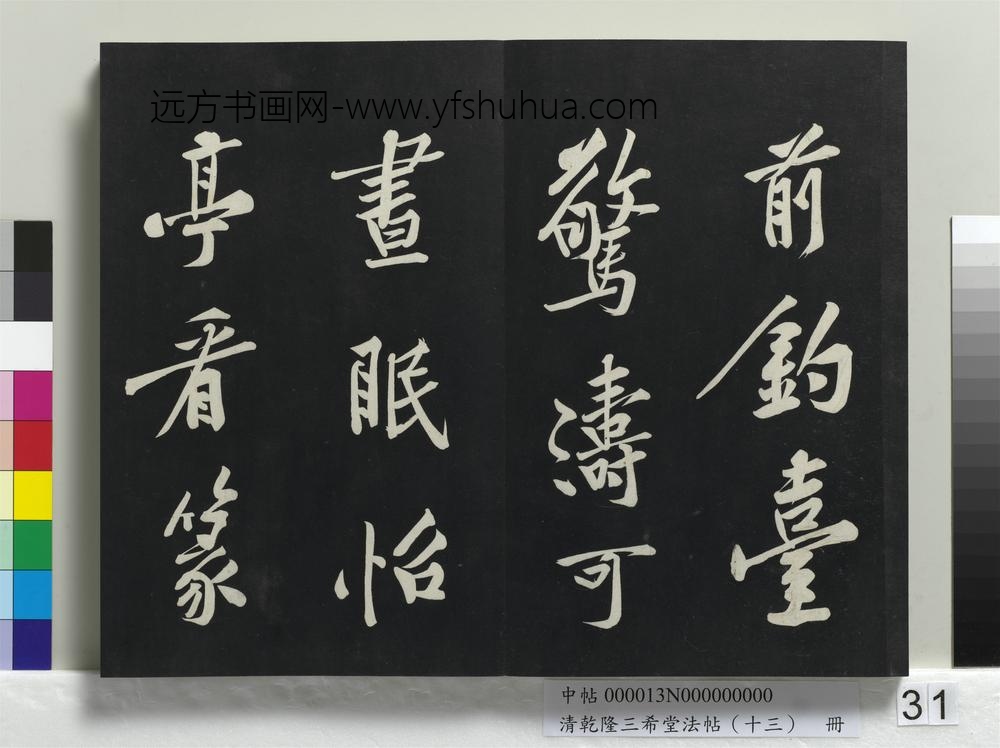 远方书画网-www.yfshuhua.com
前釣臺
驚濤可
晝眠怡
亭看篆
中帖 000013N000000000
清乾隆三希堂法帖（十三） 冊
31